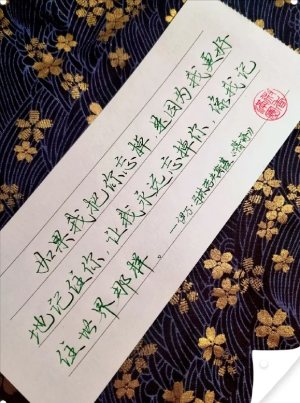 如果我把你忘掉，是因为我更好
地记住你，让我永远忘掉你，像我记
住世界那样。